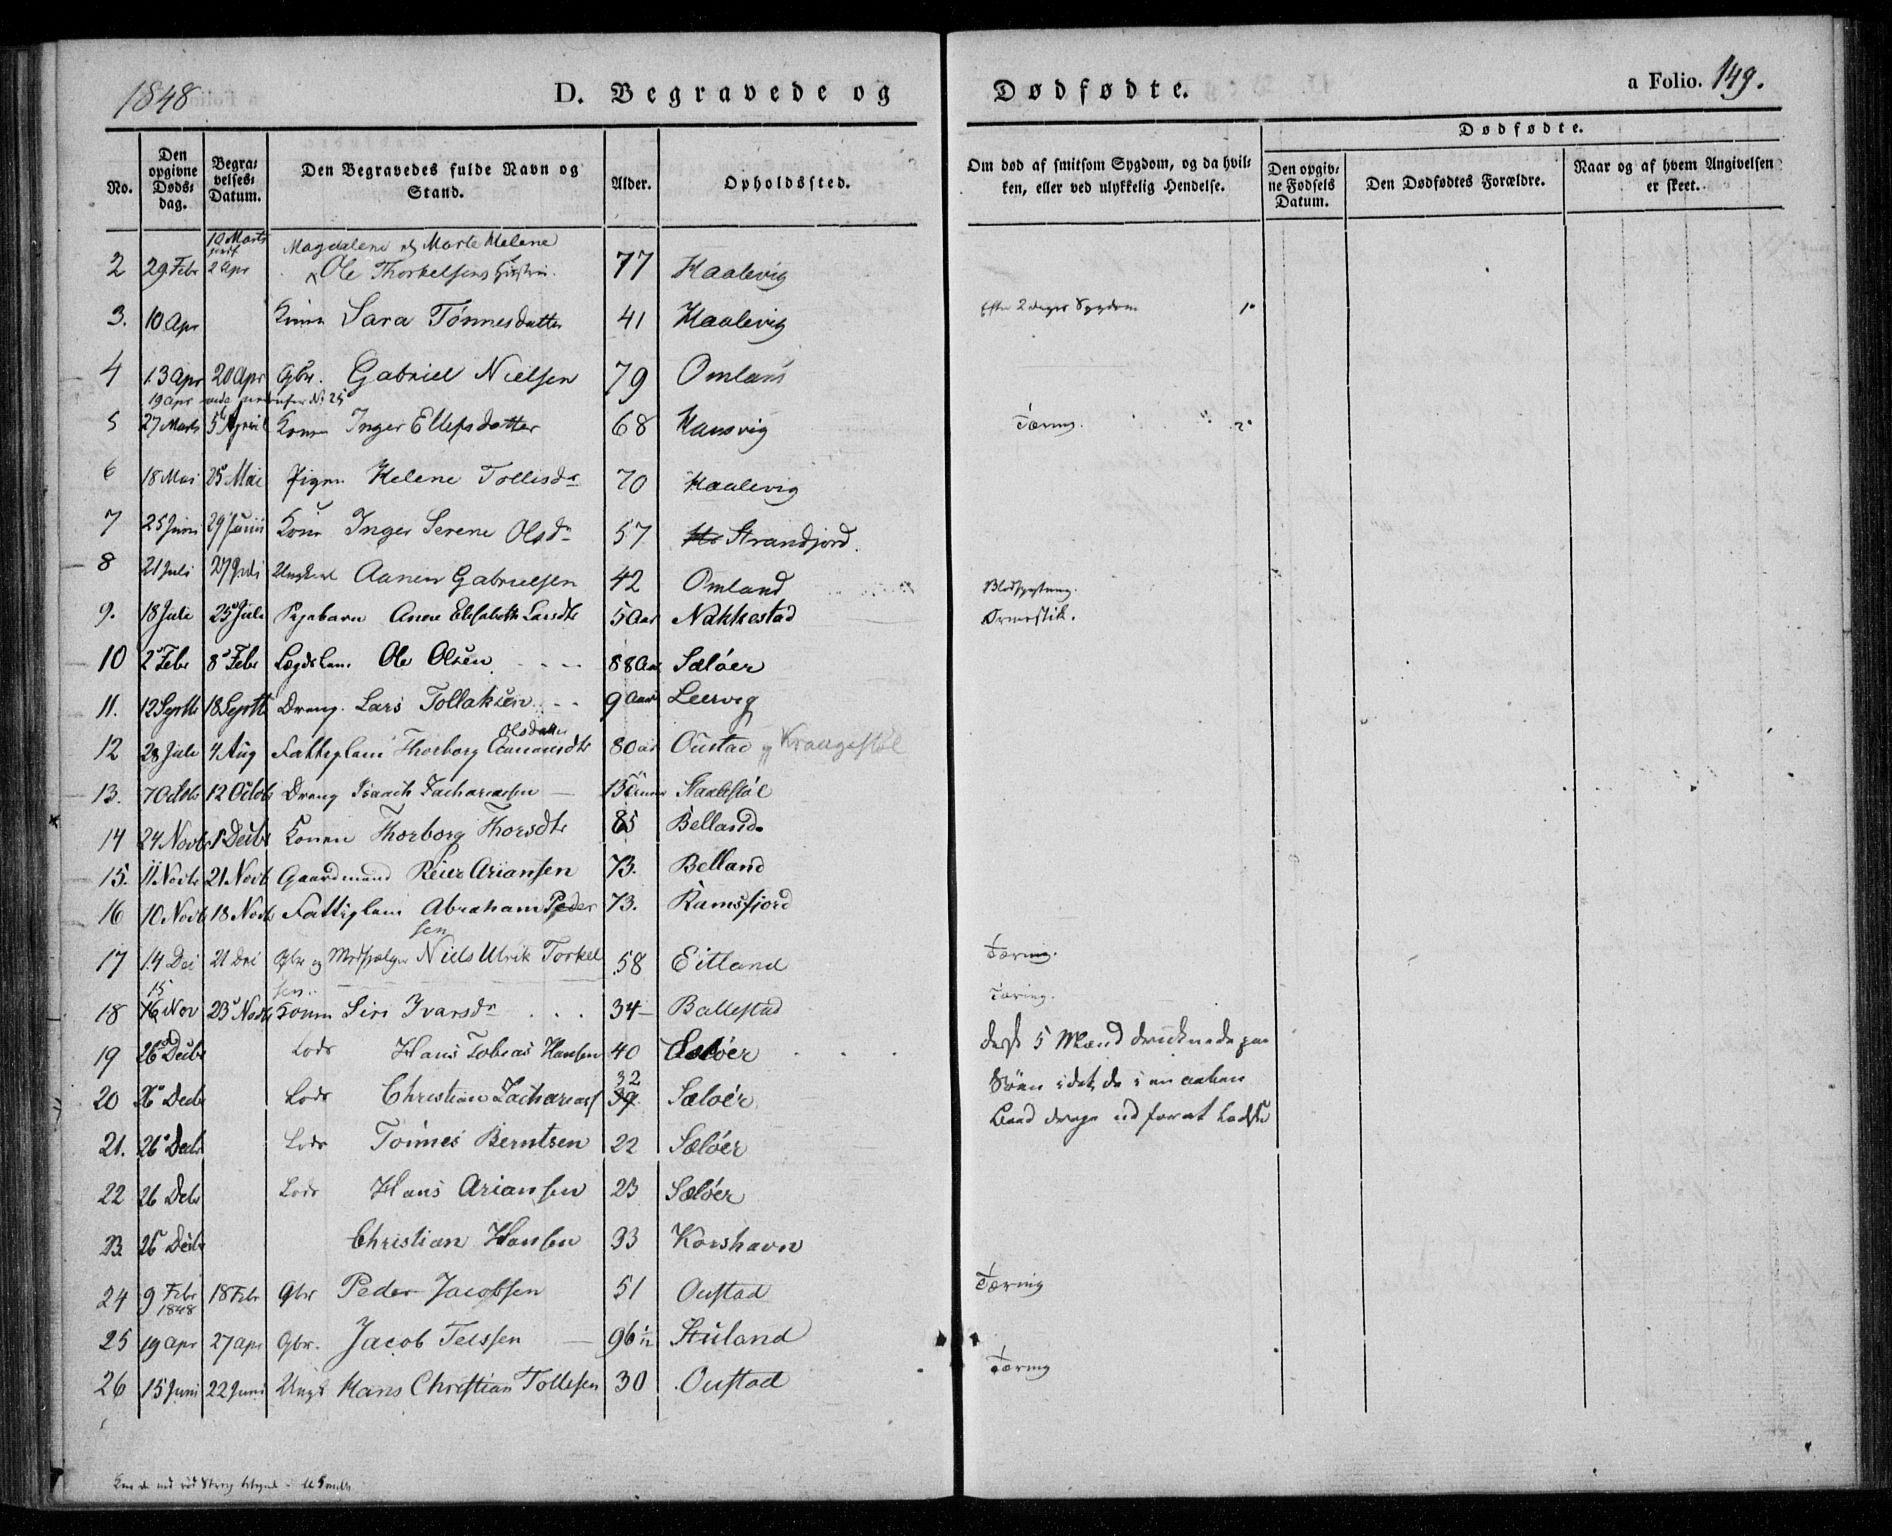 1848
D. Begravede og Dødfødte.
a Folio. 149.
No.
Den opgivne Døds-dag.
Begra-velses-Datum.
Den Begravedes fulde Navn og Stand.
Alder.
Opholdssted.
Om død af smitsom Sygdom, og da hvil-ken, eller ved ulykkelig Hendelse.
Dødfødte.
Den opgiv-ne Fødsels Datum.
Den Dødfødtes Forældre.
Naar og af hvem Angivelsen er skeet.
10 Marts Magdalene Marte Helene
2 29 Febr 2 Apr Ole Thorkelsens 77 Haalevig
3. 10 Apr Konen Sara Tönnesdatter 41 Haalevig Efter 2 dages Sygdom 1
4 13 Apr 20 Apr Gbr. Gabriel Nielsen 79 Omland
19 Apr No 25
5 27 Marts 5 April Konen Inger Ellefsdatter 68 Hansvig Tæring. 2
6 18 Mai 25 Mai Pigen Helene Tollisdr 70 Haalevig
7 25 Juni 29 Junii Kone Inger Serene Olsdr 57 Strandfjord.
8 21 Juli 27 Juli Ungkarl Aanen Gabrielsen 42 Omland Blodspytning.
9. 18 Juli 25 Juli Pigebarn Anne Elisabeth Larsdtr 5 Aar Nakkestad Ormestik.
10 2 Febr 8 Febr Lægdslem Ole Olsen 88 Aar Sælöer
11. 12 Septb 18 Septb Dreng Lars Tollaksen 9 Aar Leervig
Olsdatter
12 28 Juli 4 Aug Fattiglem Thorborg 80 aar Oustad Kraagestøl
13. 7 Octb 12 Octbr Dreng Isaach Zachariassen 13 Staalestøl
14 24 Novbr 1 Decbr Konen Thorborg Thorsdtr 85 Belland
15. 11 Novbr 21 Novb Gaardmand Reier Ariansen 73. Belland
16 10 Novb 18 Novb Fattiglem Abraham Peder 73. Ramsfjord
sen
17 14 Dec 21 Dec Gbr og Niels Ulrik Torkel 58 Eitland Tæring.
15 sen
18 16 Nov 23 Novb Konen Siri Ivarsdr 34 Ballestad Tæring.
19 26 Decbr Lods Hans Tobias Hansen 40 Sælöer disse 5 Mænd druknede paa
32
20 26 Decbr Lods Christian Zachariass 39 Sælöer Söen idet de i en aaben
21. 26 Decbr Lods Tönnes Berntsen 22 Sælöer Baad drog ud for at lodse
22 26 Debr Lods Hans Ariansen 23 Sælöer
23. 26 Decbr Christian Hansen 33 Korshavn
24 9 Febr 18 Febr Gbr Peder Jacobsen 51 Oustad Tæring
1848
25 19 Apr 27 Apr Gbr. Jacob Teissen 96 ½ Stuland
26 15 Juni 22 Juni Ungk Hans Christian Tollefsen 30 Oustad Tæring